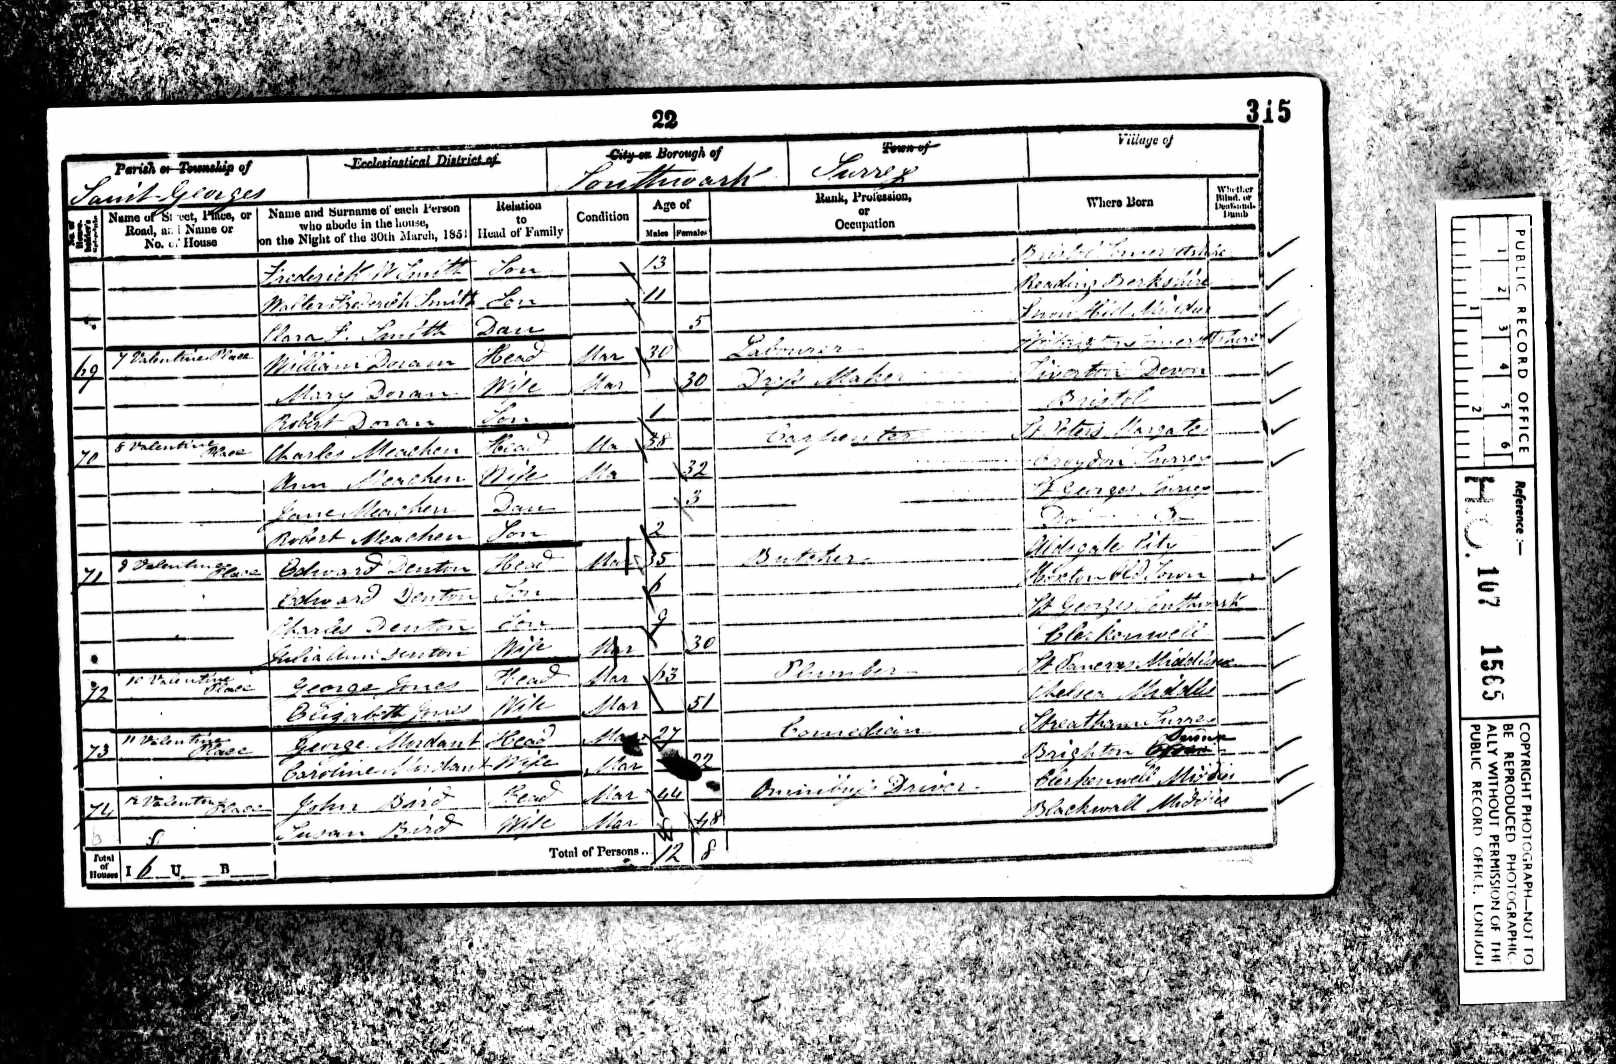 22
315
Parish or Township of
Ecclesiastical District of
City or Borough of
Town of
Village of
Saint Georges
Southwark
Surrey
Name of Street, Place, or Road, and Name or No. of House
Name and Surname of each Person who abode in the house, on the Night of the 30th March, 1851
Relation to Head of Family
Condition
Age of
Males Females
Rank, Profession, or Occupation
Where Born
Whether Blind, or Deaf-and-Dumb
Frederick W Smith Son 13 Bristol
Walter Frederick Smith Son 11 Reading Berkshire
Clara F. Smith Dau 5 Snow Hill
69 7 Valentine Place William Doran Head Mar 30 Labourer
Mary Doran Wife Mar 30 Maker Tiverton Devon
Robert Doran Son 1 Bristol
70 8 Valentine Place Charles Meachen Head Ma 38 Carpenter St Peters Margate
Ann Meachen Wife Ma 32 Croydon Surrey
Jane Meachen Dau 3 St Georges Surrey
Robert Meachen Son 2 Do
71 9 Valentine Place Edward Denton Head Mar 35 Butcher City
Edward Denton Son 6 Hoxton Old Town
Charles Denton Son St Georges Southwark
Julia Ann Denton Wife Mar 30 Clerkenwell
72 10 Valentine Place George Jones Head Mar 63 Plumber St Pancras Middlesex
Elizabeth Jones Wife Mar 51 Chelsea Middx
73 11 Valentine Place George Mordant Head 27 Comedian Streatham Surrey
Caroline Mordant Wife Mar 22 Brighton
74 12 Valentine Place John Bird Head Mar 44 Omnibus Driver Clerkenwell
Susan Bird Wife Mar 48 Blackwall
Total of Houses I 6 U B
Total of Persons.. 12 8
PUBLIC RECORD OFFICE
1 2 3 4 5 6
1 2
Reference :—
H.O. 107 1565
COPYRIGHT PHOTOGRAPH—NOT TO
BE REPRODUCED PHOTOGRAPHIC
ALLY WITHOUT PERMISSION OF THE
PUBLIC RECORD OFFICE, LONDON